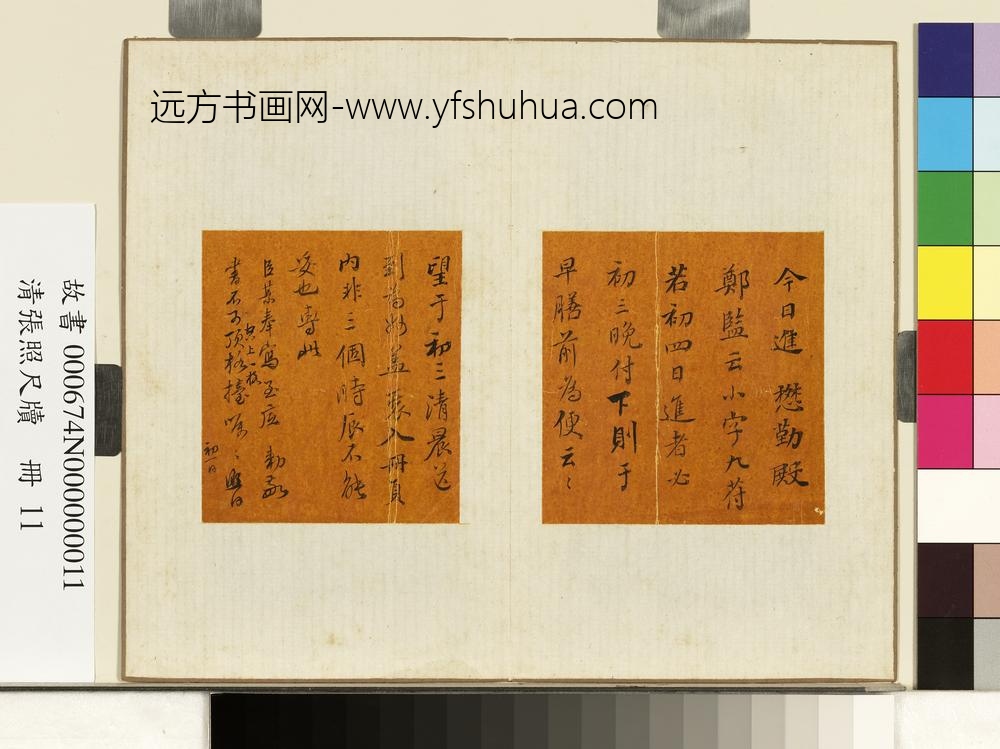 远方书画网-www.yfshuhua.com
今日進 懋勤殿
鄭監云小字九符
若初四日進者必
初三晚付下則于
早膳前為便云〻
望于初三清晨送
到為妙蓋裝入冊頁
內非三個時辰不能
妥也專此
臣某奉寫至應 勅
書不可頂格擡
初一日
故書 000674N000000011
清張照尺牘 冊 11